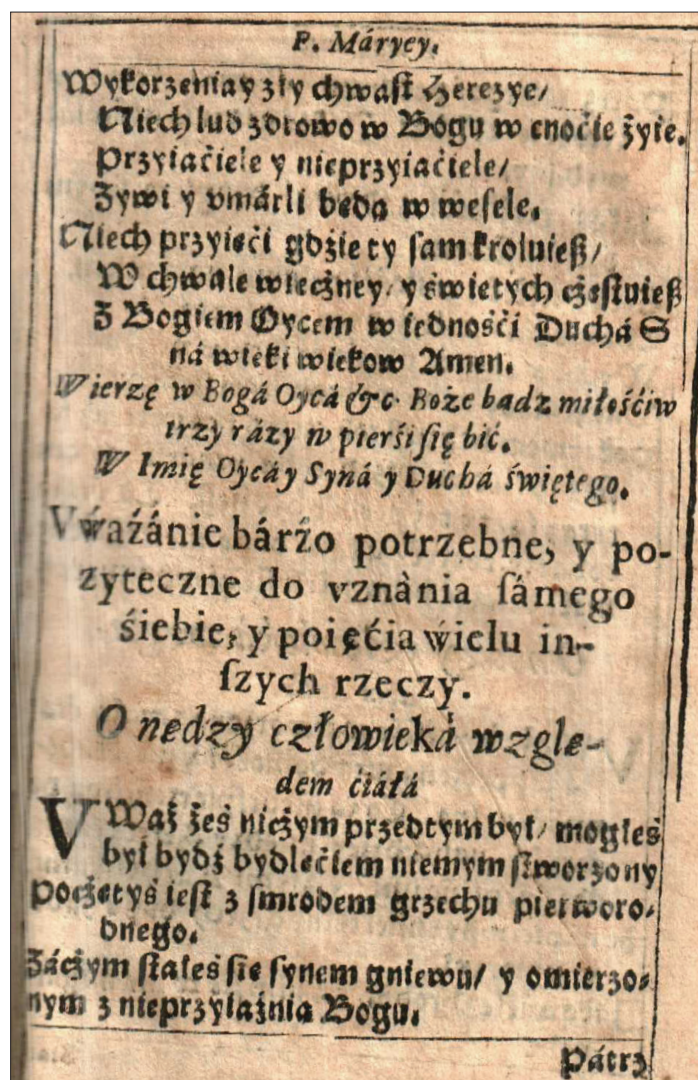 P. Máryey.
Wykorzeniay zły chwast Herezye/
Niech lud zdrowo w Bogu w cnoćie żyie.
Przyiaćiele y nieprzyiaćiele/
Zywi y vmárli beda w wesele.
Niech przyieći gdzie ty sam kroluieß/
W chwale wieczney/ y świetych czestuieß
Z Bogiem Oycem w iednośći Duchá S
ná wieki wiekow Amen.
Wierzę w Bogá Oycá &c. Boże badz miłośćiw
trzy rázy w pierśi się bić.
W Imię Oycá y Syná y Duchá świętego.
Vważánie bárzo potrzebne, y po-
zyteczne do vznánia sámego
śiebie, y poięćia wielu in-
szych rzeczy.
O nedzy człowieká wzgle-
dem ćiáłá
VWaż żeś niczym przedtym był/ mogłeś
był bydź bydlećiem niemym stworzony
Poczetyś iest z smrodem grzechu pierworo-
dnego.
Záczym stałeś sie synem gniewu/ y omierzo-
nym z nieprzyiaźnia Bogu.
Pátrz